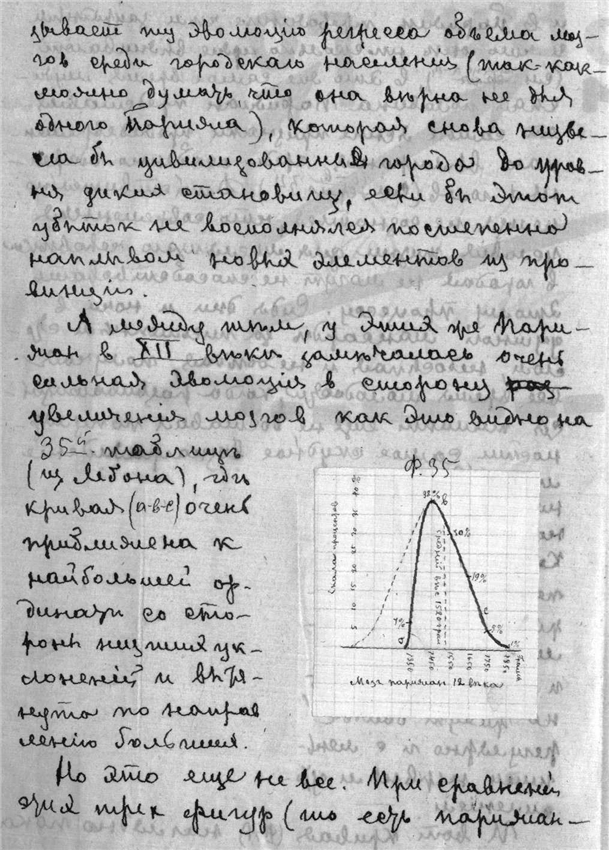 зываетъ ту эволюцію регресса объема моз-
говъ среди городскаго населенія (такъ-какъ
можно думать что она вѣрна не для
одного Парижа), которая снова низве-
ла бъ цивилизованныя города до уров-
ня дикихъ становищъ, если бъ этотъ
убытокъ не восполнялся постепенно
наплывомъ новыхъ элементовъ изъ про-
винціи.
А между тѣмъ, у этихъ же Пари-
жанъ в XII вѣкѣ замѣчалась очень
сильная эволюція в сторону
увеличенія мозговъ какъ это видно на
35й таблицѣ
(из Лебона), гдѣ
кривая (а-в-с) очень
приближена к
наибольшей ор-
динатѣ со сто-
роны низшихъ ук-
лоненій и вытя-
нута по направ
ленію большихъ.
Ф. 35
Скала процентовъ
5 10 15 20 25 30 35 40%
в
30%
19%
7%
5%
1%
а
с
Мозгъ парижанъ 12 вѣка
Но это еще не все. При сравненіи
этихъ трех фигуръ (то есть парижан-